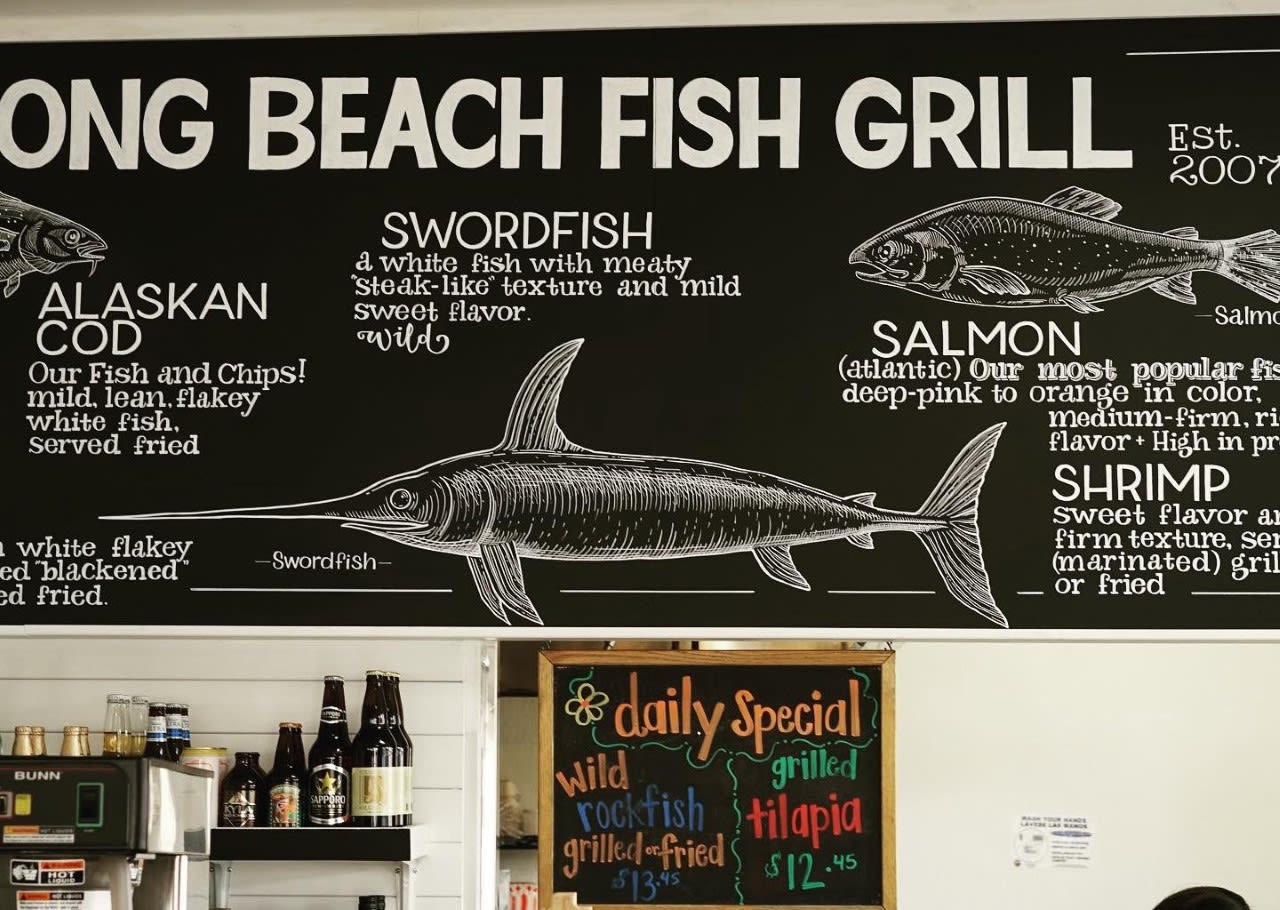 ONG BEACH FISH GRILL
Est.
2007
SWORDFISH
a white fish with meaty
"steak-like" texture and mild
sweet flavor.
wild
ALASKAN
COD
Our Fish and Chips!
mild, lean, flakey
white fish,
served fried
white flakey
ed "blackened"
ed fried.
-Swordfish-
-Salmo
SALMON
(atlantic) Our most popular fis
deep-pink to orange in color,
medium-firm, ri
flavor + High in pr
SHRIMP
sweet flavor a
firm texture, ser
(marinated) gril
or fried
daily Special
wild
rockfish
grilled or fried
$13.45
grilled
tilapia
$12.45
BUNN
HOT
LIQUID
SAPPORO
WASH YOUR HANDS
LAVESE LAS MANOS